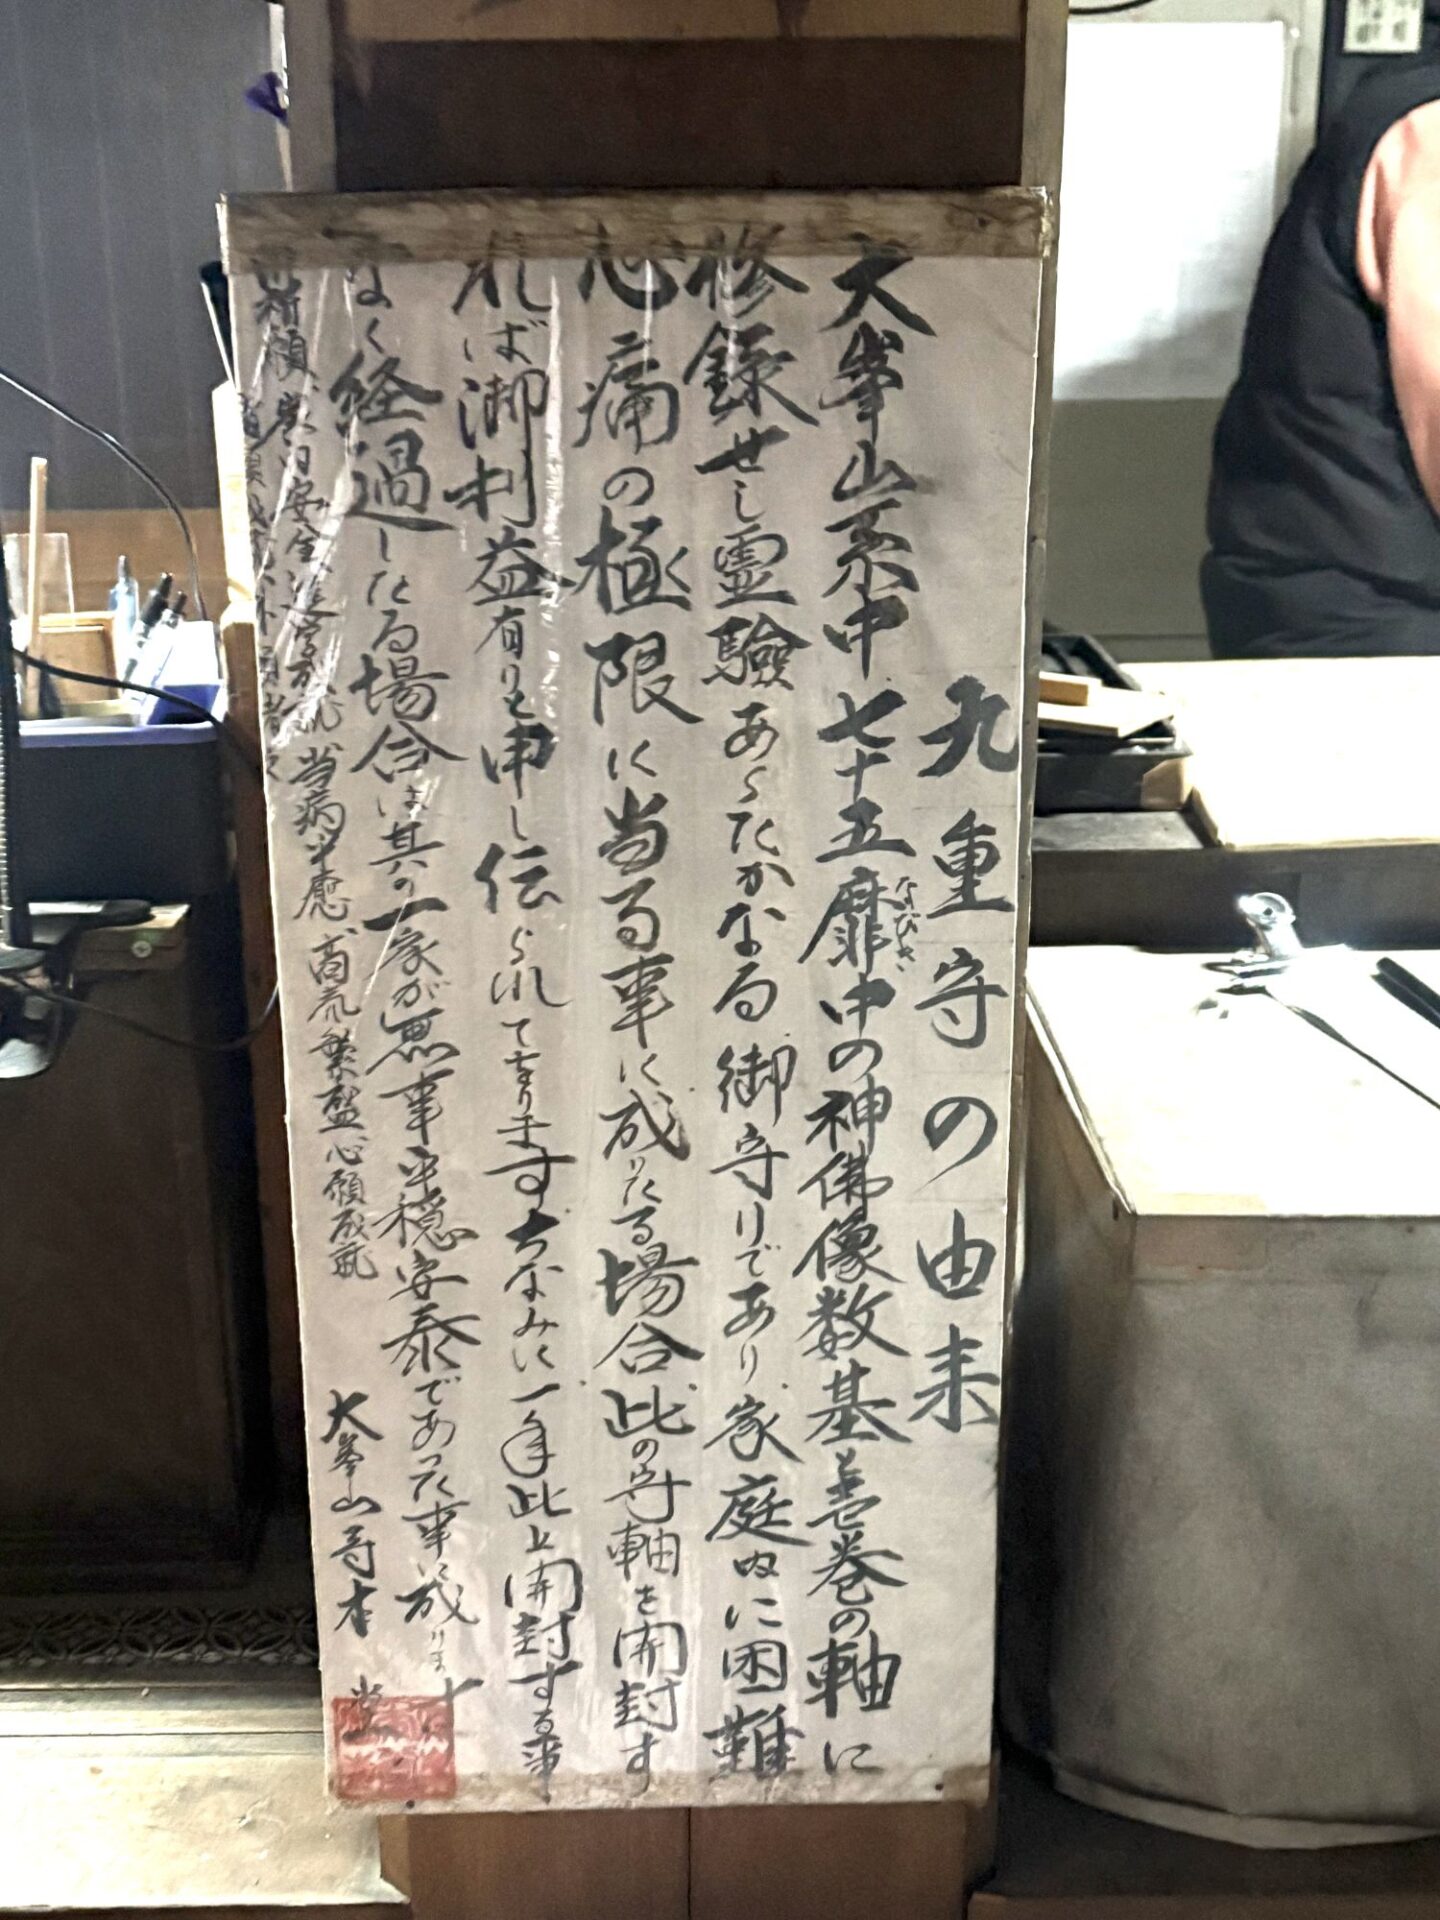 九重守の由来
大峯山系中七十五靡中の神佛像数基と壱巻の軸に
なびき
修録せし霊験あらたかなる御守りであり家庭内に困難
心痛の極限に当る事に成りたる場合此の守軸を開封す
く
れば御利益有りと申し伝られてをりますちなみに一年此上開封する事
なく経過したる場合は其の一家が無事平穏安泰であった事に成ります
祈願家内安全進学成就当病平癒商売繁盛心願成就
大峯山寺本堂